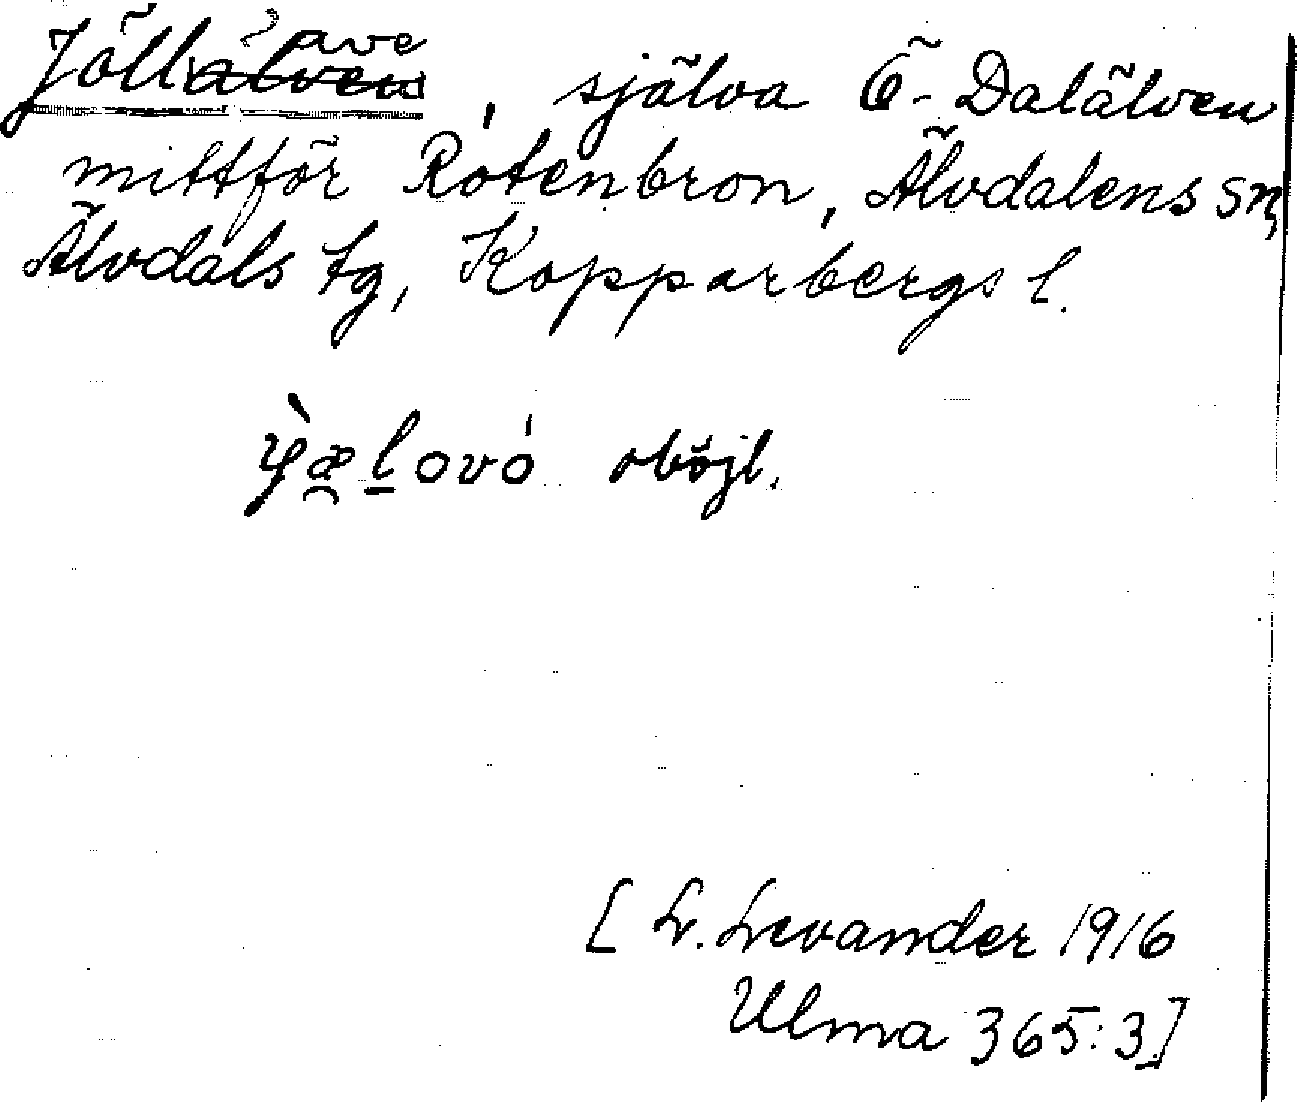 Jöllave, själva Ö-Dalälven
mittför Rotenbron, Älvdalens sn,
Älvdals tg, Kopparbergs l.
oböjl.
[L. Levander 1916
Ulma 365:3]